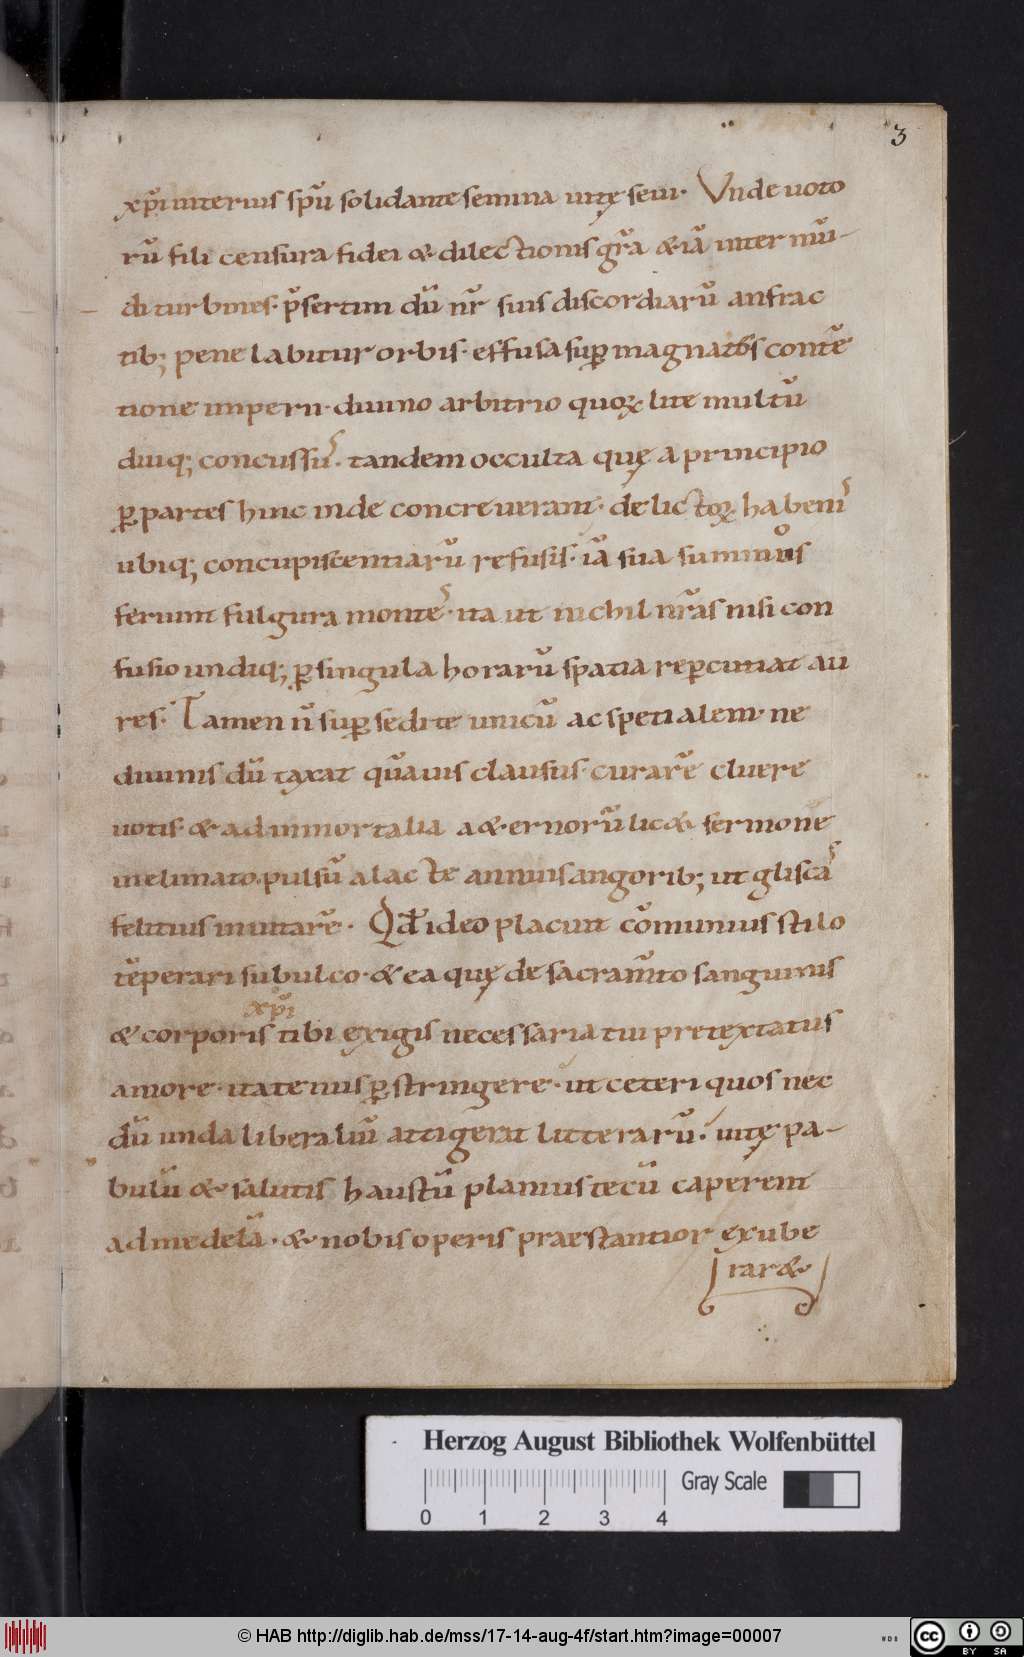 3
xp̃i interius sp̄u solidante semina uitę seui· Vnde uoto
rū fili censura fidei & dilectionis gr̃a & iā inter mū-
di turbines· p̃sertim dū nr̃ suis discordiarū anfrac
tib; pene labitur orbis· effusa sup magnatos contē
tione imperii· diuino arbitrio quoꝝ lite multū
diuq; concussus· tandem occulta quę a principio
ꝑ partes hinc inde concreuerant· delictoꝝ habenis
ubiq; concupiscentiarū refusis· iā sua summos
feriunt fulgura montes· ita ut nichil nr̃as nisi con
fusio undiq; ꝑ singula horarū spatia reꝑcutiat au
res· Tamen n̄ suꝑsedi te unicū ac spetialem· ne
diuinis dū taxat quāuis clausus· curarē cluere
uotis· & ad inmortalia a&ernorū lic& sermone
inelimato· pulsū a lacte annuis angorib; ut gliscas
felitius inuitare· Qd̄ ideo placuit cōmunius stilo
tēperari subulco· & ea quę de sacram̄to sanguinis
xp̃i
& corporis tibi exigis necessaria tui pretextatus
amore· itatenus ꝑstringere· ut ceteri quos nec
dū unda liberaliū attigerat litterarū· uitę pa-
bulū & salutis haustū planius tecū caperent
ad medelā· & nobis operis praestantior exube
rar&
Herzog August Bibliothek Wolfenbüttel
Gray Scale
0 1 2 3 4
© HAB http://diglib.hab.de/mss/17-14-aug-4f/start.htm?image=00007
cc BY SA